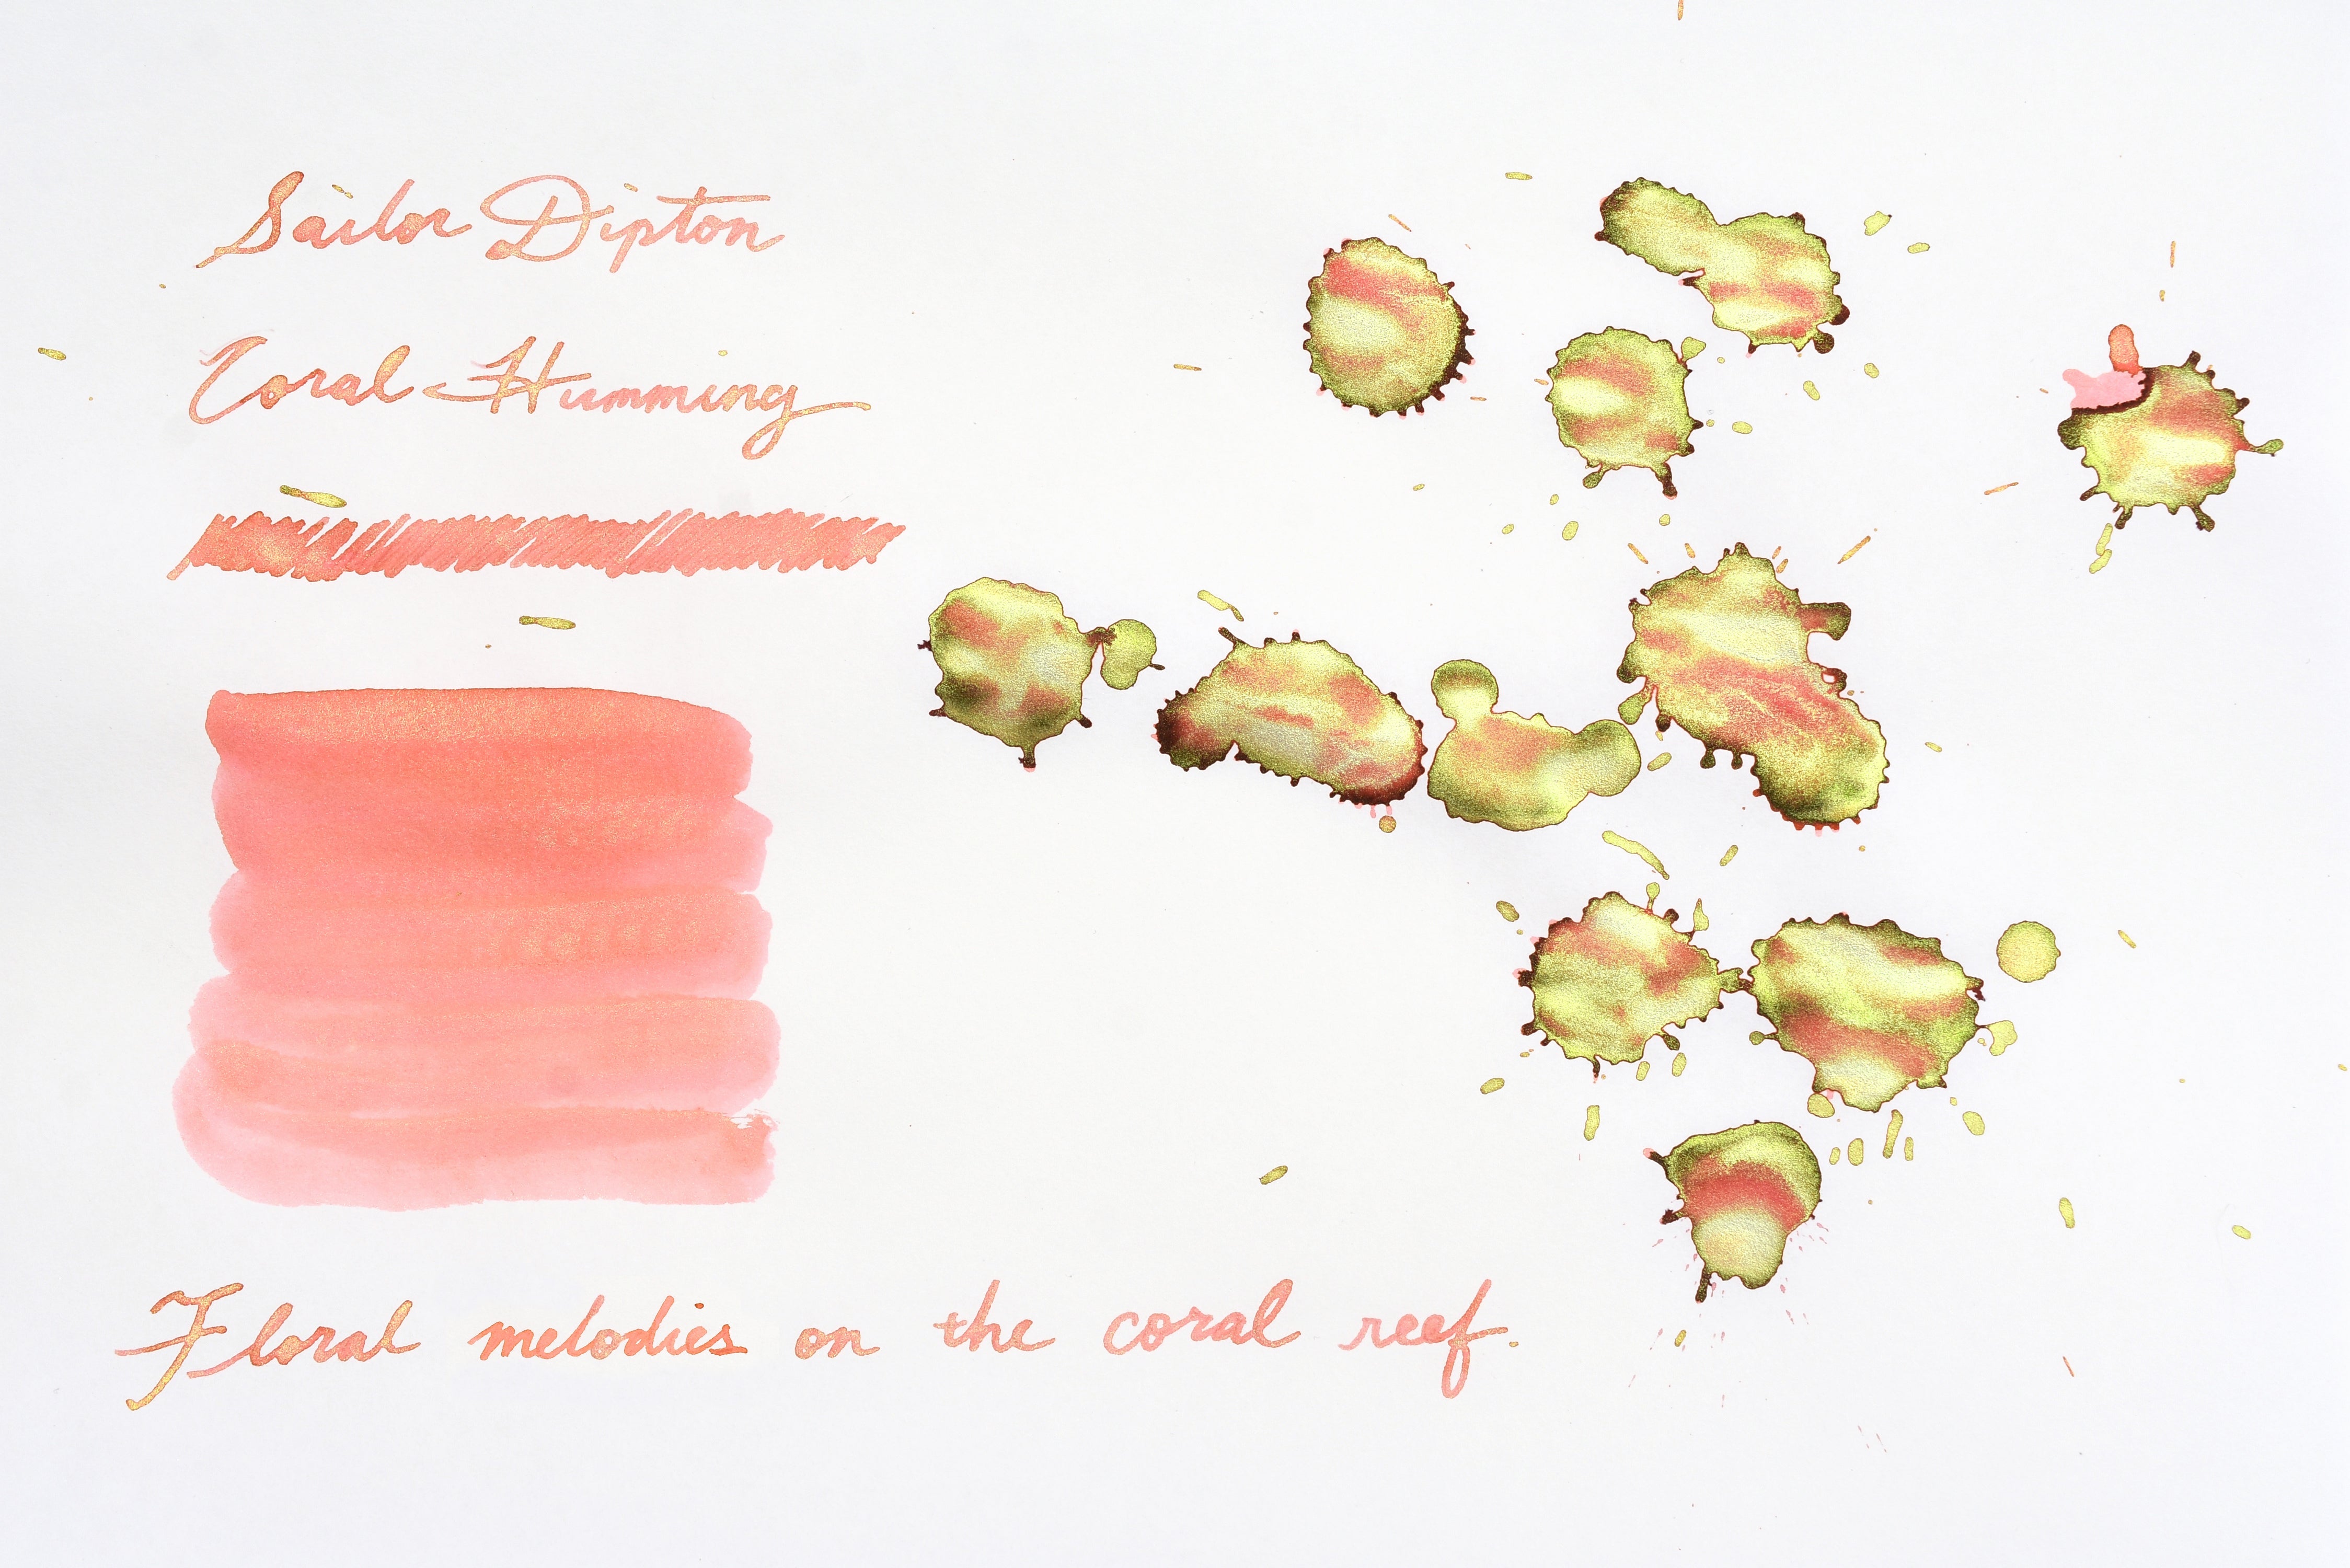 Sailor Dipton
Coral Humming
Floral melodies on the coral reef.